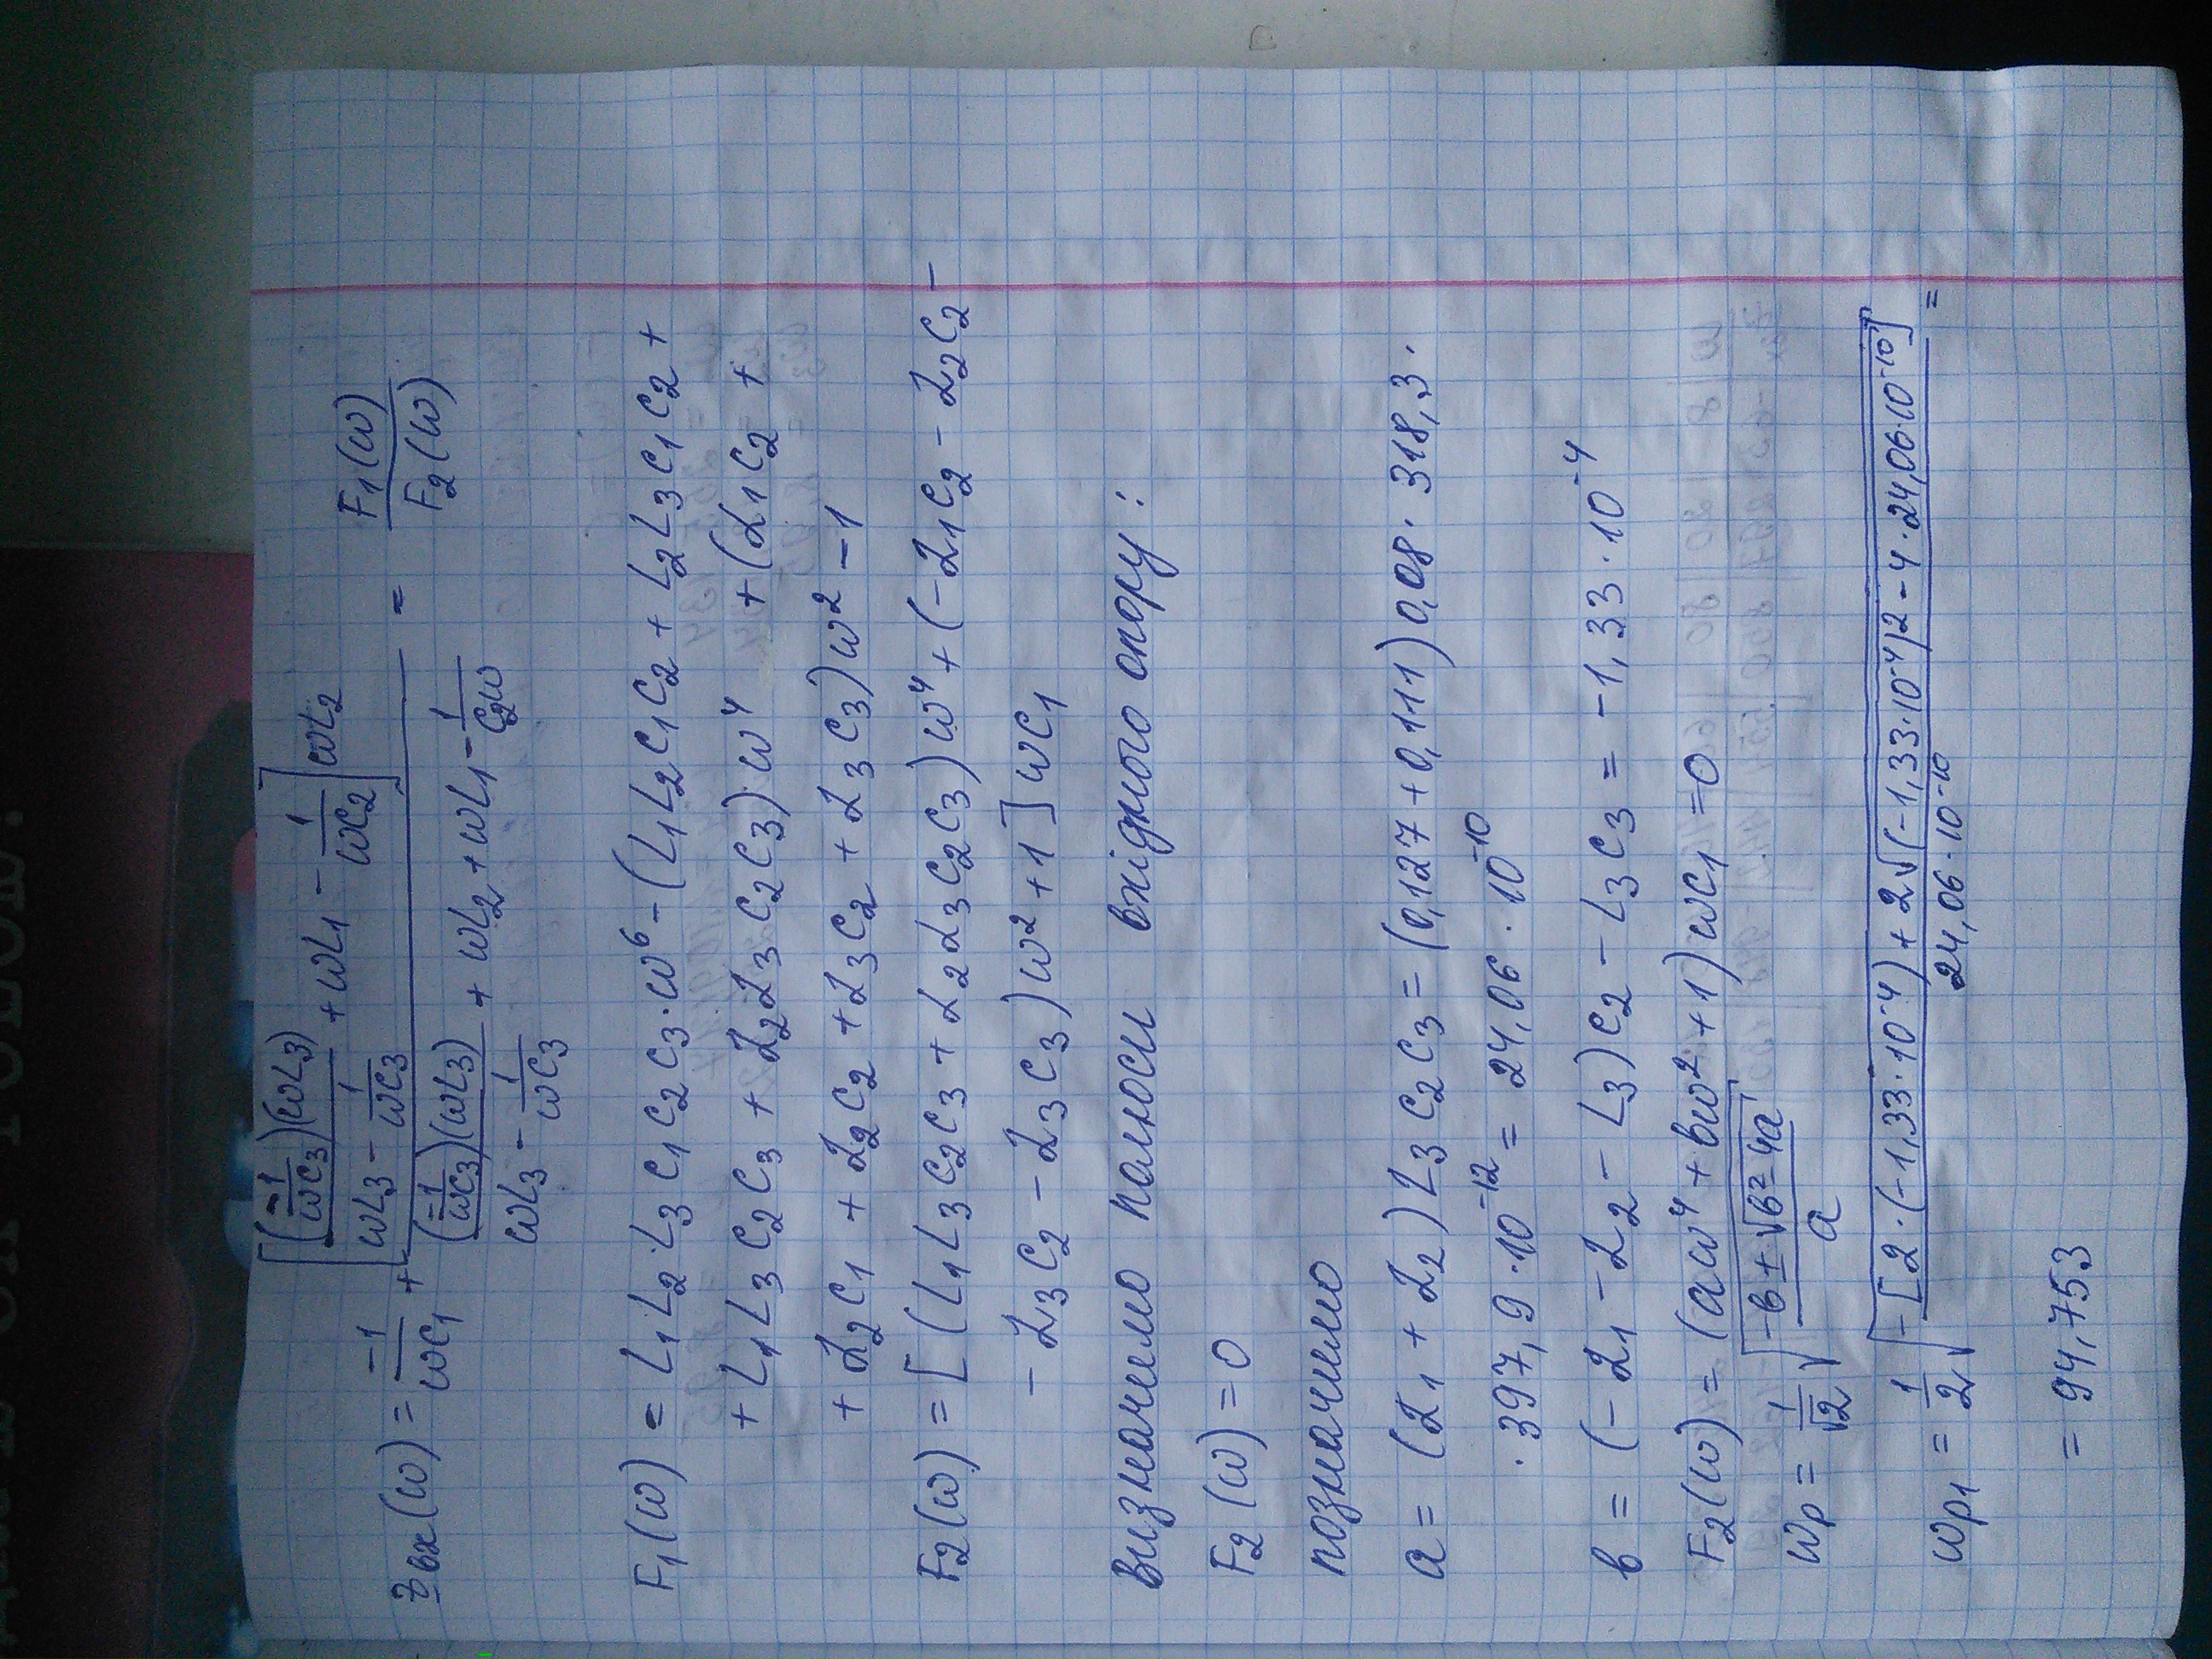 Zвх(ω) = -1/ωC1 + [((-1/ωC3)(ωL3))/(ωL3 - 1/ωC3) + ωL1 - 1/ωC2]ωL2 / ((-1/ωC3)(ωL3))/(ωL3 - 1/ωC3) + ωL2 + ωL1 - 1/C2ω = F1(ω)/F2(ω)
F1(ω) = L1L2L3C1C2C3·ω⁶ - (L1L2C1C2 + L2L3C1C2 +
+ L1L3C2C3 + L2L3C2C3)·ω⁴ + (L1C2 +
+ L2C1 + L2C2 + L3C2 + L3C3)ω² - 1
F2(ω) = [(L1L3C2C3 + L2L3C2C3)ω⁴ + (-L1C2 - L2C2 -
- L3C2 - L3C3)ω² + 1]ωC1
визначемо полюси вхідного опору:
F2(ω) = 0
позначимо
a = (L1 + L2)L3C2C3 = (0,127 + 0,111)0,08·318,3·
·397,9·10⁻¹² = 24,06·10⁻¹⁰
в = (-L1 - L2 - L3)C2 - L3C3 = -1,33·10⁻⁴
F2(ω) = (aω⁴ + вω² + 1)ωC1 = 0
ωp = 1/√2 √(-в ± √(в² - 4a)/a)
ωp1 = 1/2 √(-[2·(-1,33·10⁻⁴) + 2√((-1,33·10⁻⁴)2 - 4·24,06·10⁻¹⁰]/24,06·10⁻¹⁰) =
= 94,753